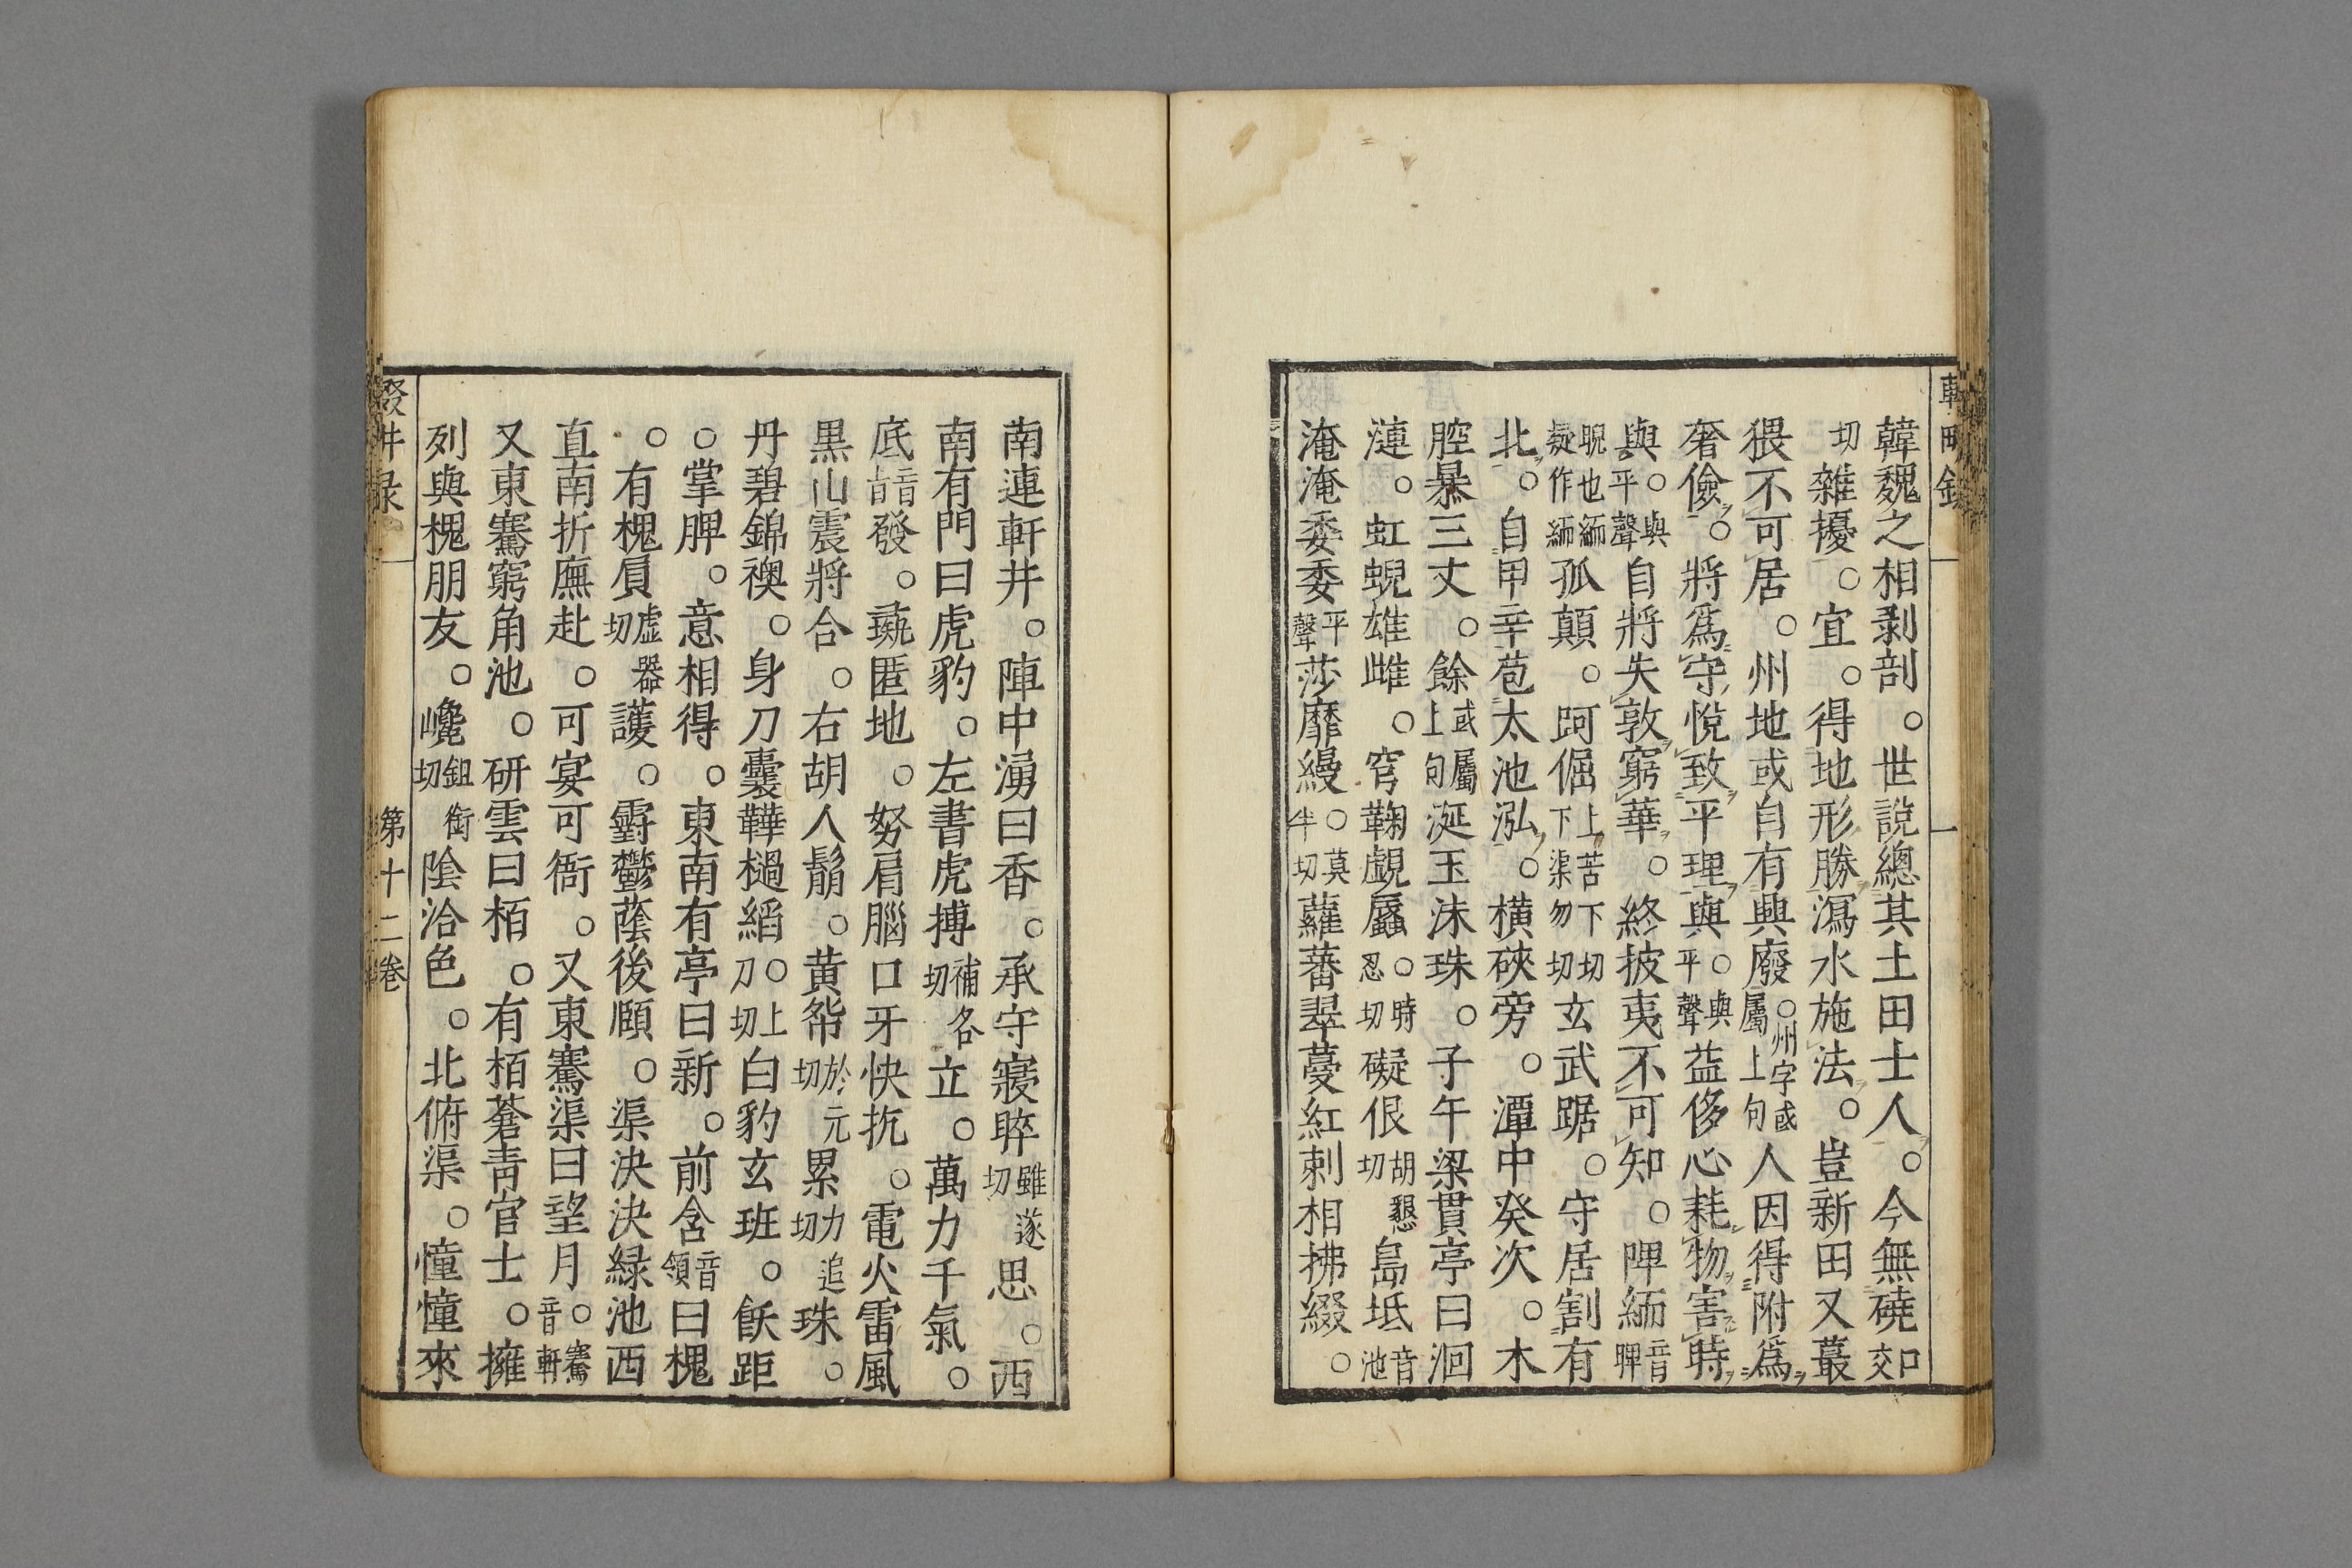 韓魏之相剥剖。世說總其土田士人。今無磽口交
切雜擾。宜。得地形勝瀉水施法。豈新田又蕞
猥不可居。州地或自有興廢○州字或屬上句人因得附爲
奢儉。將爲守悅致平理與○與平聲益侈心耗物害時
與○與平聲自將失敦窮華。終披夷不可知。陴緬音睥
睨也緬疑作緬孤顛。跒倔上苦下切下渠勿切玄武踞。守居割有
北。自甲辛苞太池泓。橫硤旁。潭中癸次。木
腔暴三丈。餘或屬上句涎玉沫珠。子午梁貫亭曰洄
漣。虹蜺雄雌。穹鞠覷蜃○時忍切礙佷胡懇切島坻音池
淹淹委委平聲莎靡縵○莫半切蘿蕃翠蔓紅刺相拂綴。
南連軒井。陣中湧曰香。承守寢睟雖遂切思。西
南有門曰虎豹。左書虎搏補各切立。萬力千氣。
底音古發。彘匿地。努肩腦口牙快抗。電火雷風
黑山震將合。右胡人鬅。黃帤於元切累力追切珠。
丹碧錦襖。身刀囊鞾檛縚○上刀切白豹玄班。飫距
○掌胛。意相得。東南有亭曰新。前含音頷曰槐
。有槐屓虛器切護。霨鬱蔭後頤。渠決決緑池西
直南折廡赴。可宴可衙。又東騫渠曰望月○騫音軒
又東騫窮角池。研雲曰栢。有栢蒼青官士。擁
列與槐朋友。巉鉏銜切陰洽色。北俯渠。憧憧來
第十二卷